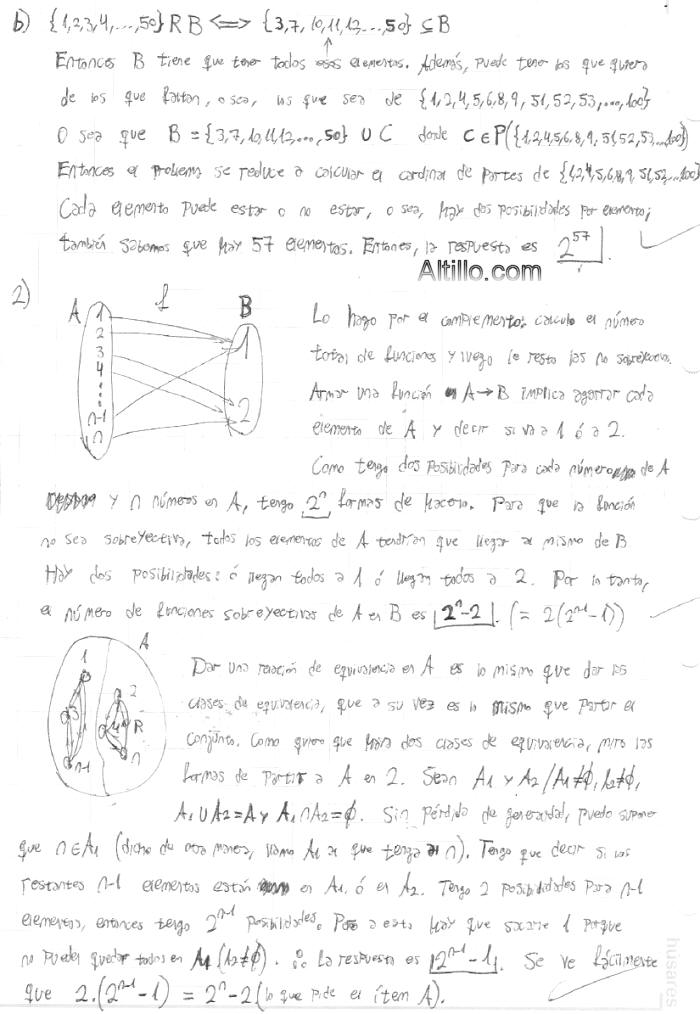 b) {1,2,3,4,...,50} R B <=> {3,7,10,11,12,...,50} ⊆ B
Entonces B tiene que tener todos esos elementos. Además, puede tener los que quiera
de los que faltan, o sea, los que sea de {1,2,4,5,6,8,9,51,52,53,...,100}
O sea que B = {3,7,10,11,12,...,50} ∪ C donde C ∈ P({1,2,4,5,6,8,9,51,52,53,...,100})
Entonces el problema se reduce a calcular el cardinal de partes de {1,2,4,5,6,8,9,51,52,...,100}
Cada elemento puede estar o no estar, o sea, hay dos posibilidades por elemento;
también sabemos que hay 57 elementos. Entonces, la respuesta es 2^57.
Altillo.com
2)
A f B
1
2
3
4
n-1
n
1
2
Lo hago por el complemento: calculo el número
total de funciones y luego le resto las no sobreyectivas.
Armar una función A → B implica agarrar cada
elemento de A y decir si va a 1 ó a 2.
Como tengo dos posibilidades para cada número de A
y n números en A, tengo 2^n formas de hacerlo. Para que la función
no sea sobreyectiva, todos los elementos de A tendrían que llegar al mismo de B
Hay dos posibilidades: ó llegan todos a 1 ó llegan todos a 2. Por lo tanto,
el número de funciones sobreyectivas de A en B es 2^n-2. (= 2(2^n-1 - 1))
A
1
2
3
4
R
n-1
n
Dar una relación de equivalencia en A es lo mismo que dar las
clases de equivalencia, que a su vez es lo mismo que partir el
conjunto. Como quiero que haya dos clases de equivalencia, miro las
formas de partir a A en 2. Sean A1 y A2 / A1≠∅, A2≠∅,
A1 ∪ A2 = A y A1 ∩ A2 = ∅. Sin pérdida de generalidad, puedo suponer
que n ∈ A1 (dicho de otra manera, llamo A1 al que tenga al n). Tengo que decir si los
restantes n-1 elementos están en A1 ó en A2. Tengo 2 posibilidades para n-1
elementos, entonces tengo 2^n-1 posibilidades. Pero a esto hay que sacarle 1 porque
no pueden quedar todos en A1 (A2≠∅). ∴ La respuesta es 2^n-1 - 1. Se ve fácilmente
que 2.(2^n-1 - 1) = 2^n - 2 (lo que pide el ítem A).
husares